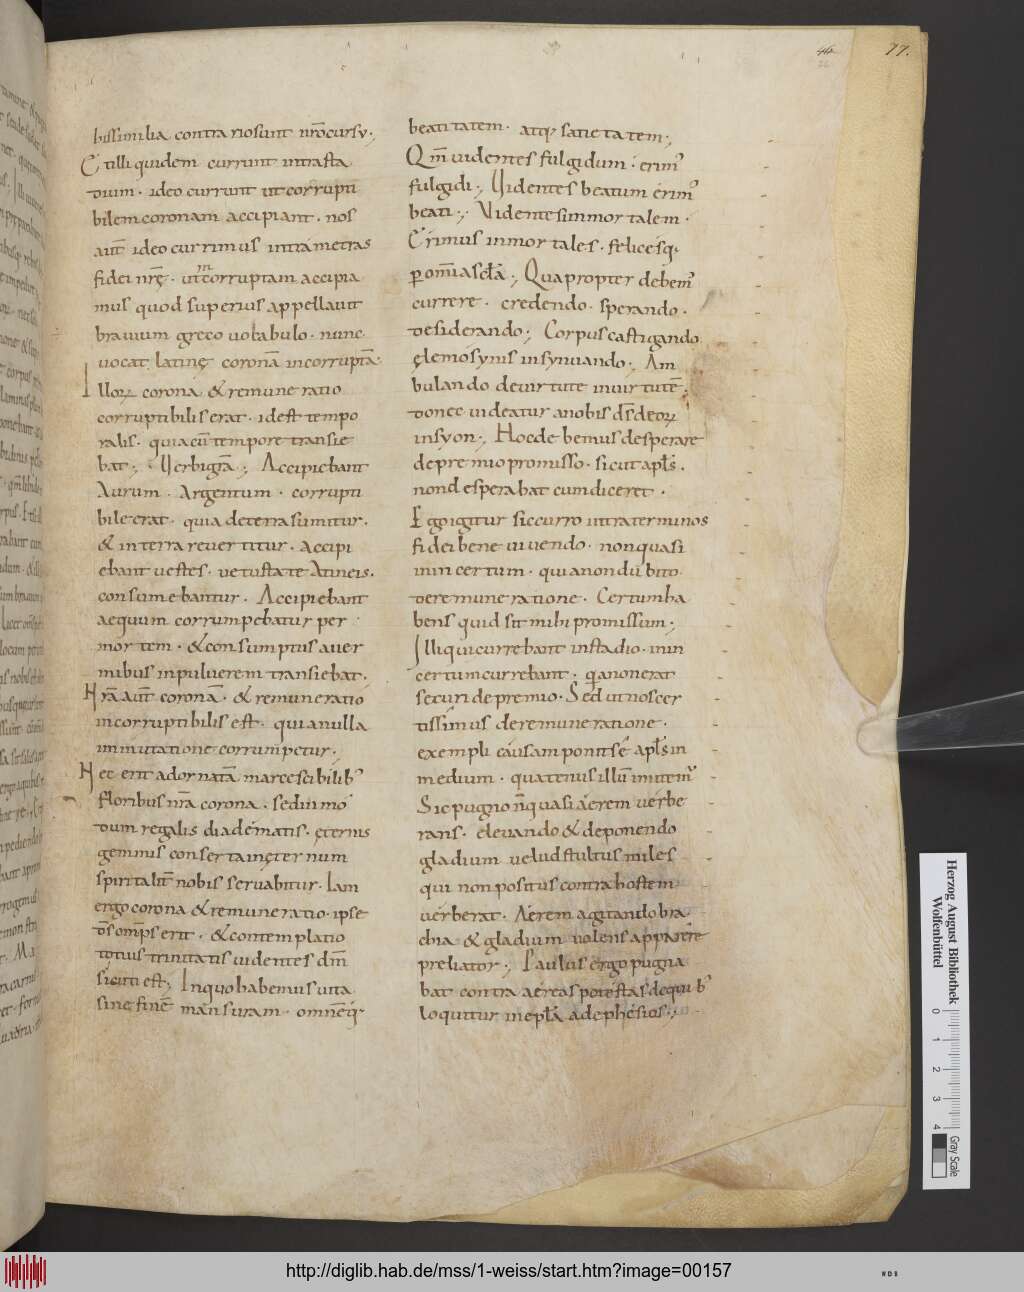 44
77.
bissimilia contrariosunt nr̄ocursy·,
Et illi quidem currunt intrasta
dium · ideo currunt ut corrupti
bilem coronam accipiant · nos
aut̄ ideo currimus intra metras
fidei nr̄ę · ut incorruptam accipia
mus quod superius appellavit
bravium greco vocabulo · nunc
vocat latinę coronā incorruptā·
Illorꝝ corona & remuneratio
corruptibilis erat · idest tempo
ralis · quia cū tempore transie
bat ·, Verbigrā ·, Accipiebant
Aurum · Argentum · corrupti
bile erat · quia deterra sumitur ·
& interra revertitur · accipi
ebant vestes · vetustate Atineis ·
consumebantur · Accipiebant
aequum corrumpebatur per
mortem · & consumptus aver
mibus inpulverem transiebat ·
Nrā aut̄ coronā · & remuneratio
incorruptibilis est · quia nulla
inmutatione corrumpetur ·
Nec erit adornatā marcescibilib;
floribus nrā corona · sed in mo
dum regalis diadematis · ęternis
gemmis conserta inęternum
spiritalit̄ nobis servabitur · Iam
ergo corona & remuneratio · ipse
d̄s om̄ps erit · & contemplatio
totius trinitatis videntes dm̄
sicuti est ·, Inquo habemus vita
sine fine mansuram · omneq·
beatitatem · atq; satietatem ·,
Qm̄ videntes fulgidum · erim;
fulgidi ·, Videntes beatum erim;
beati ·, Videntes inmortalem ·
Erimus inmortales · felicesq;
p̱ om̄ia sc̄la ·, Quapropter debem;
currere · credendo · sperando ·
desiderando ·, Corpus castigando
ęlemosynis insynuando ·, Am
bulando devirtute invirtutē ·
donec videatur anobis d̄s deorꝝ
insyon ·, Hoc debemus desperare
depremio promisso · sicut apl̄s ·
non desperabat cum diceret ·
Ego igitur sic curro intraterminos
fidei bene vivendo · non quasi
inincertum · quia non dubito
deremuneratione · Certum ha
bens quid sit mihi promissum ·,
Illi qui currebant instadio · inin
certum currebant · q̄a non erat
securi depremio · Sed ut noscer
tissimus deremuneratione ·
exempli causam ponit sē apl̄s in
medium · quatenus illū imitem;
Sic pugno n̄ quasi aerem verbe
rans · elevando & deponendo
gladium velud stultus miles
qui non positus contra hostem
verberat · Aerem agitando bra
chia & gladium volens apparere
preliator ·, Paulus ergo pugna
bat contra aereas potestas dequib;
loquitur inepl̄a adephesios ·,
Herzog August Bibliothek
Wolfenbüttel
0 1 2 3 4
Gray Scale
http://diglib.hab.de/mss/1-weiss/start.htm?image=00157